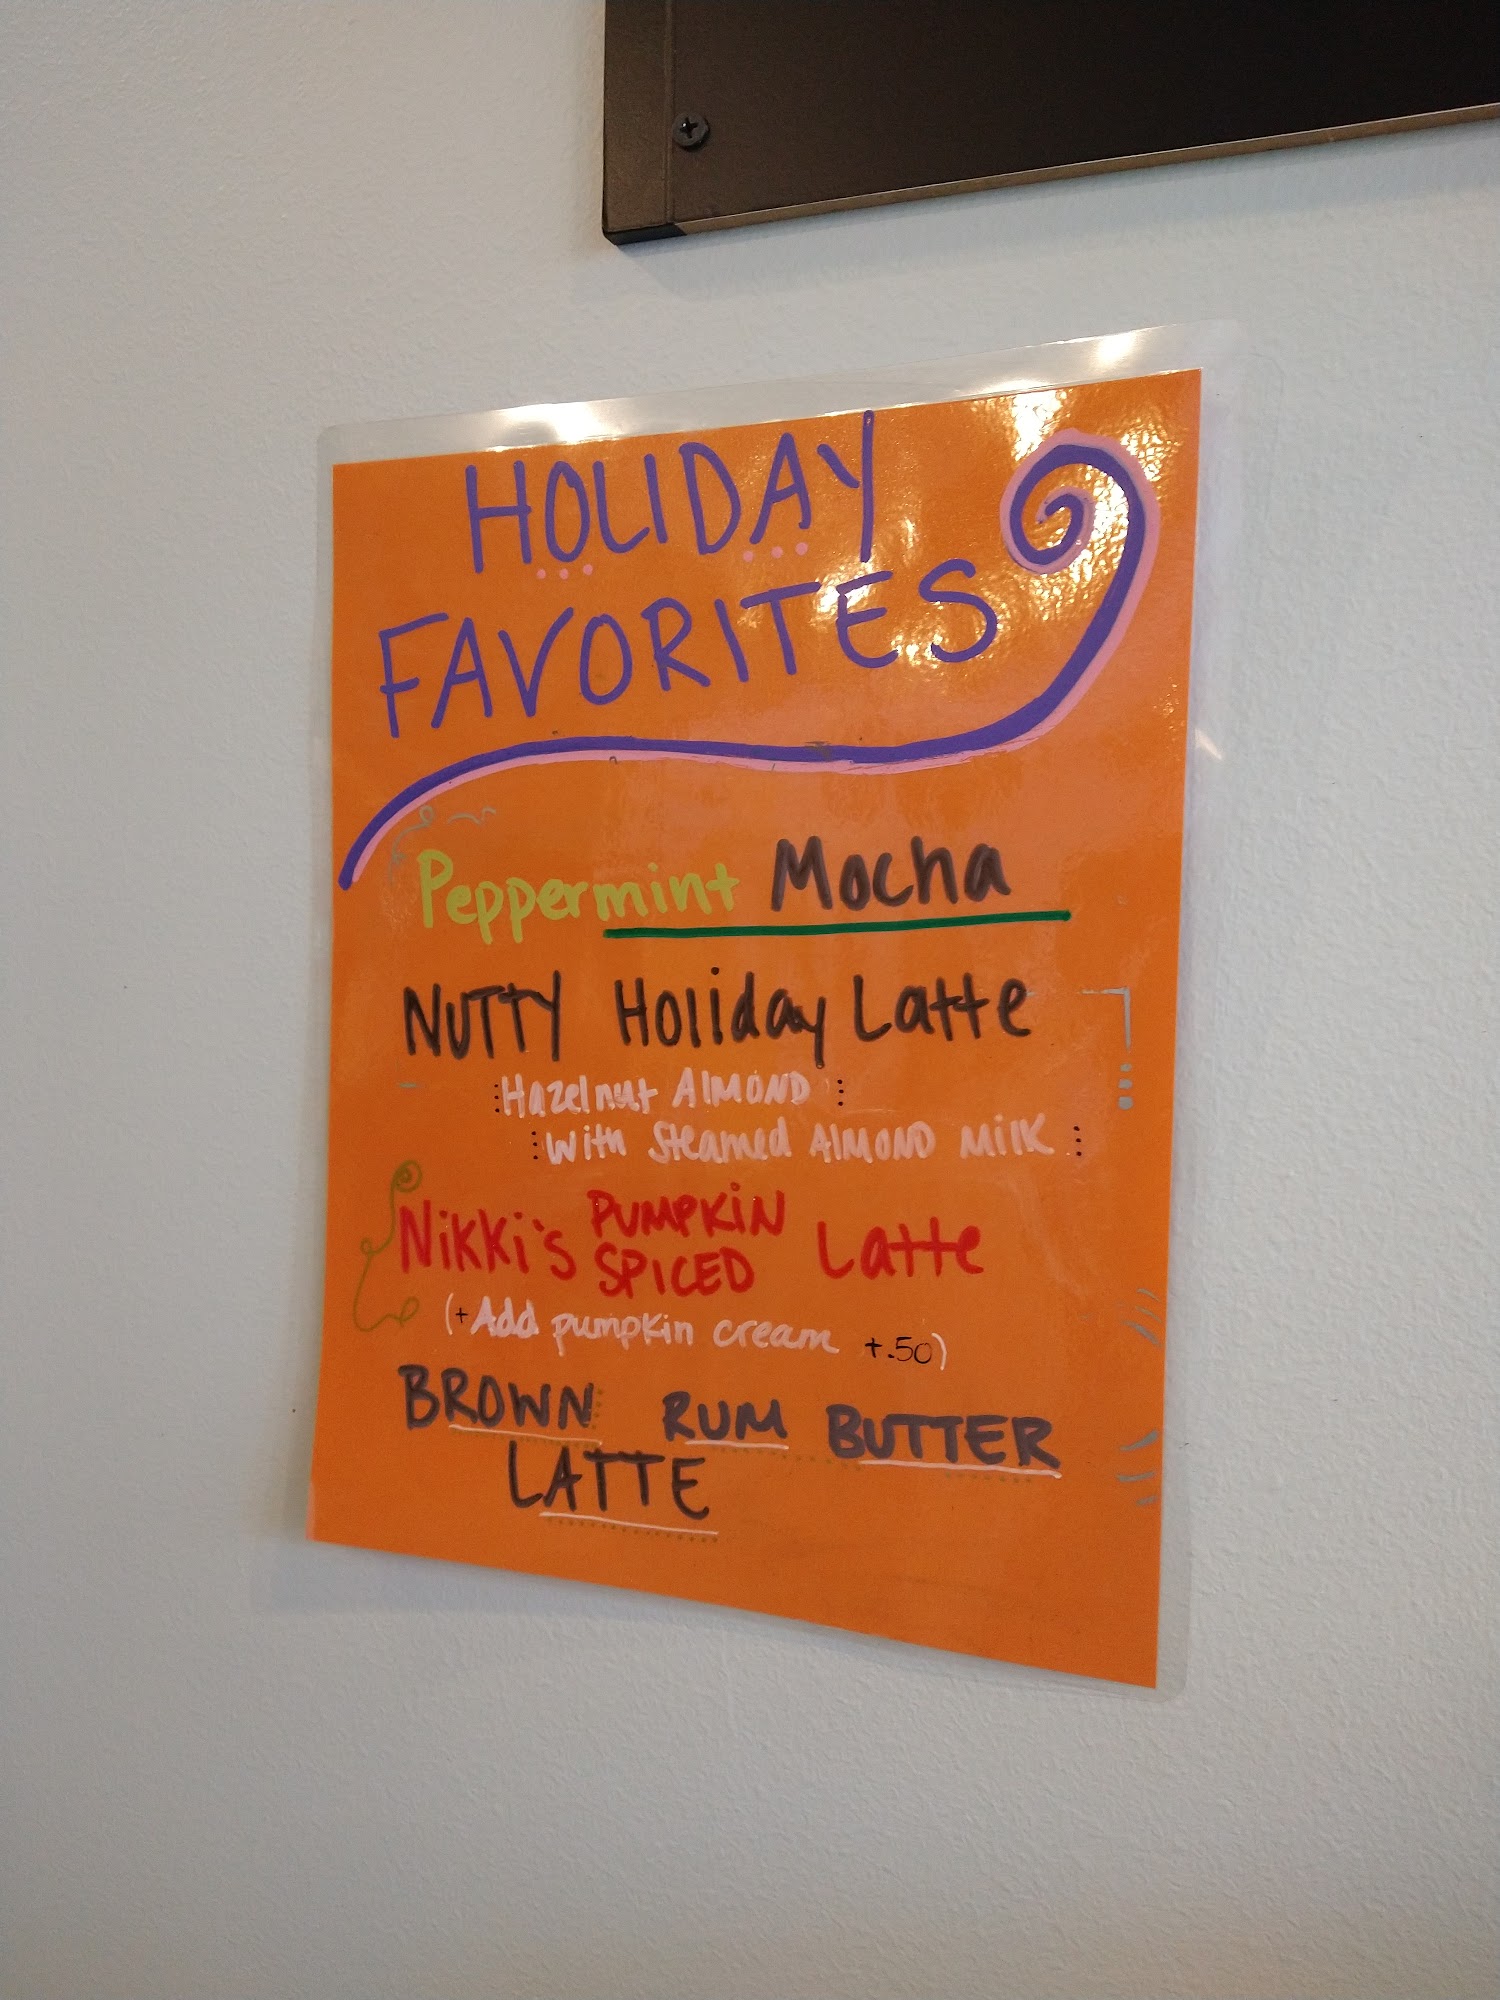 HOLIDAY
FAVORITES
Peppermint Mocha
NUTTY Holiday Latte
Hazelnut ALMOND
With Steamed ALMOND MILK
Nikki's PUMPKIN SPICED Latte
(+Add pumpkin cream +.50)
BROWN RUM BUTTER
LATTE